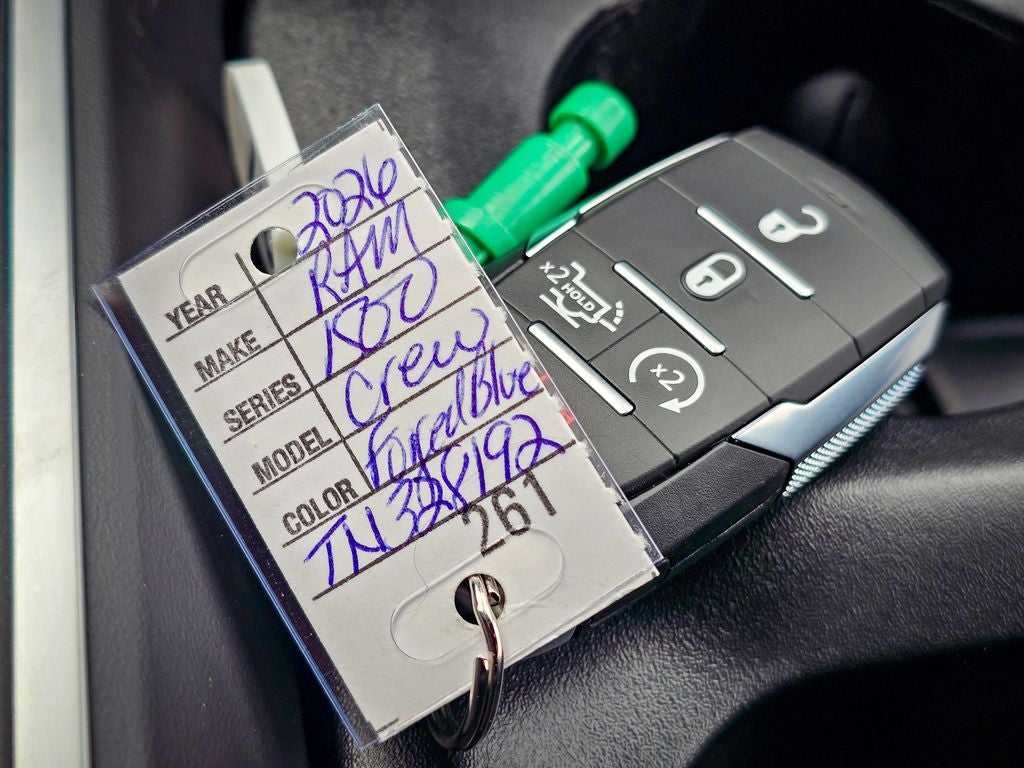 YEAR 2026
MAKE RAM
SERIES 1500
MODEL Crew
COLOR Forged Blue
TN328192
261
x2 HOLD
x2